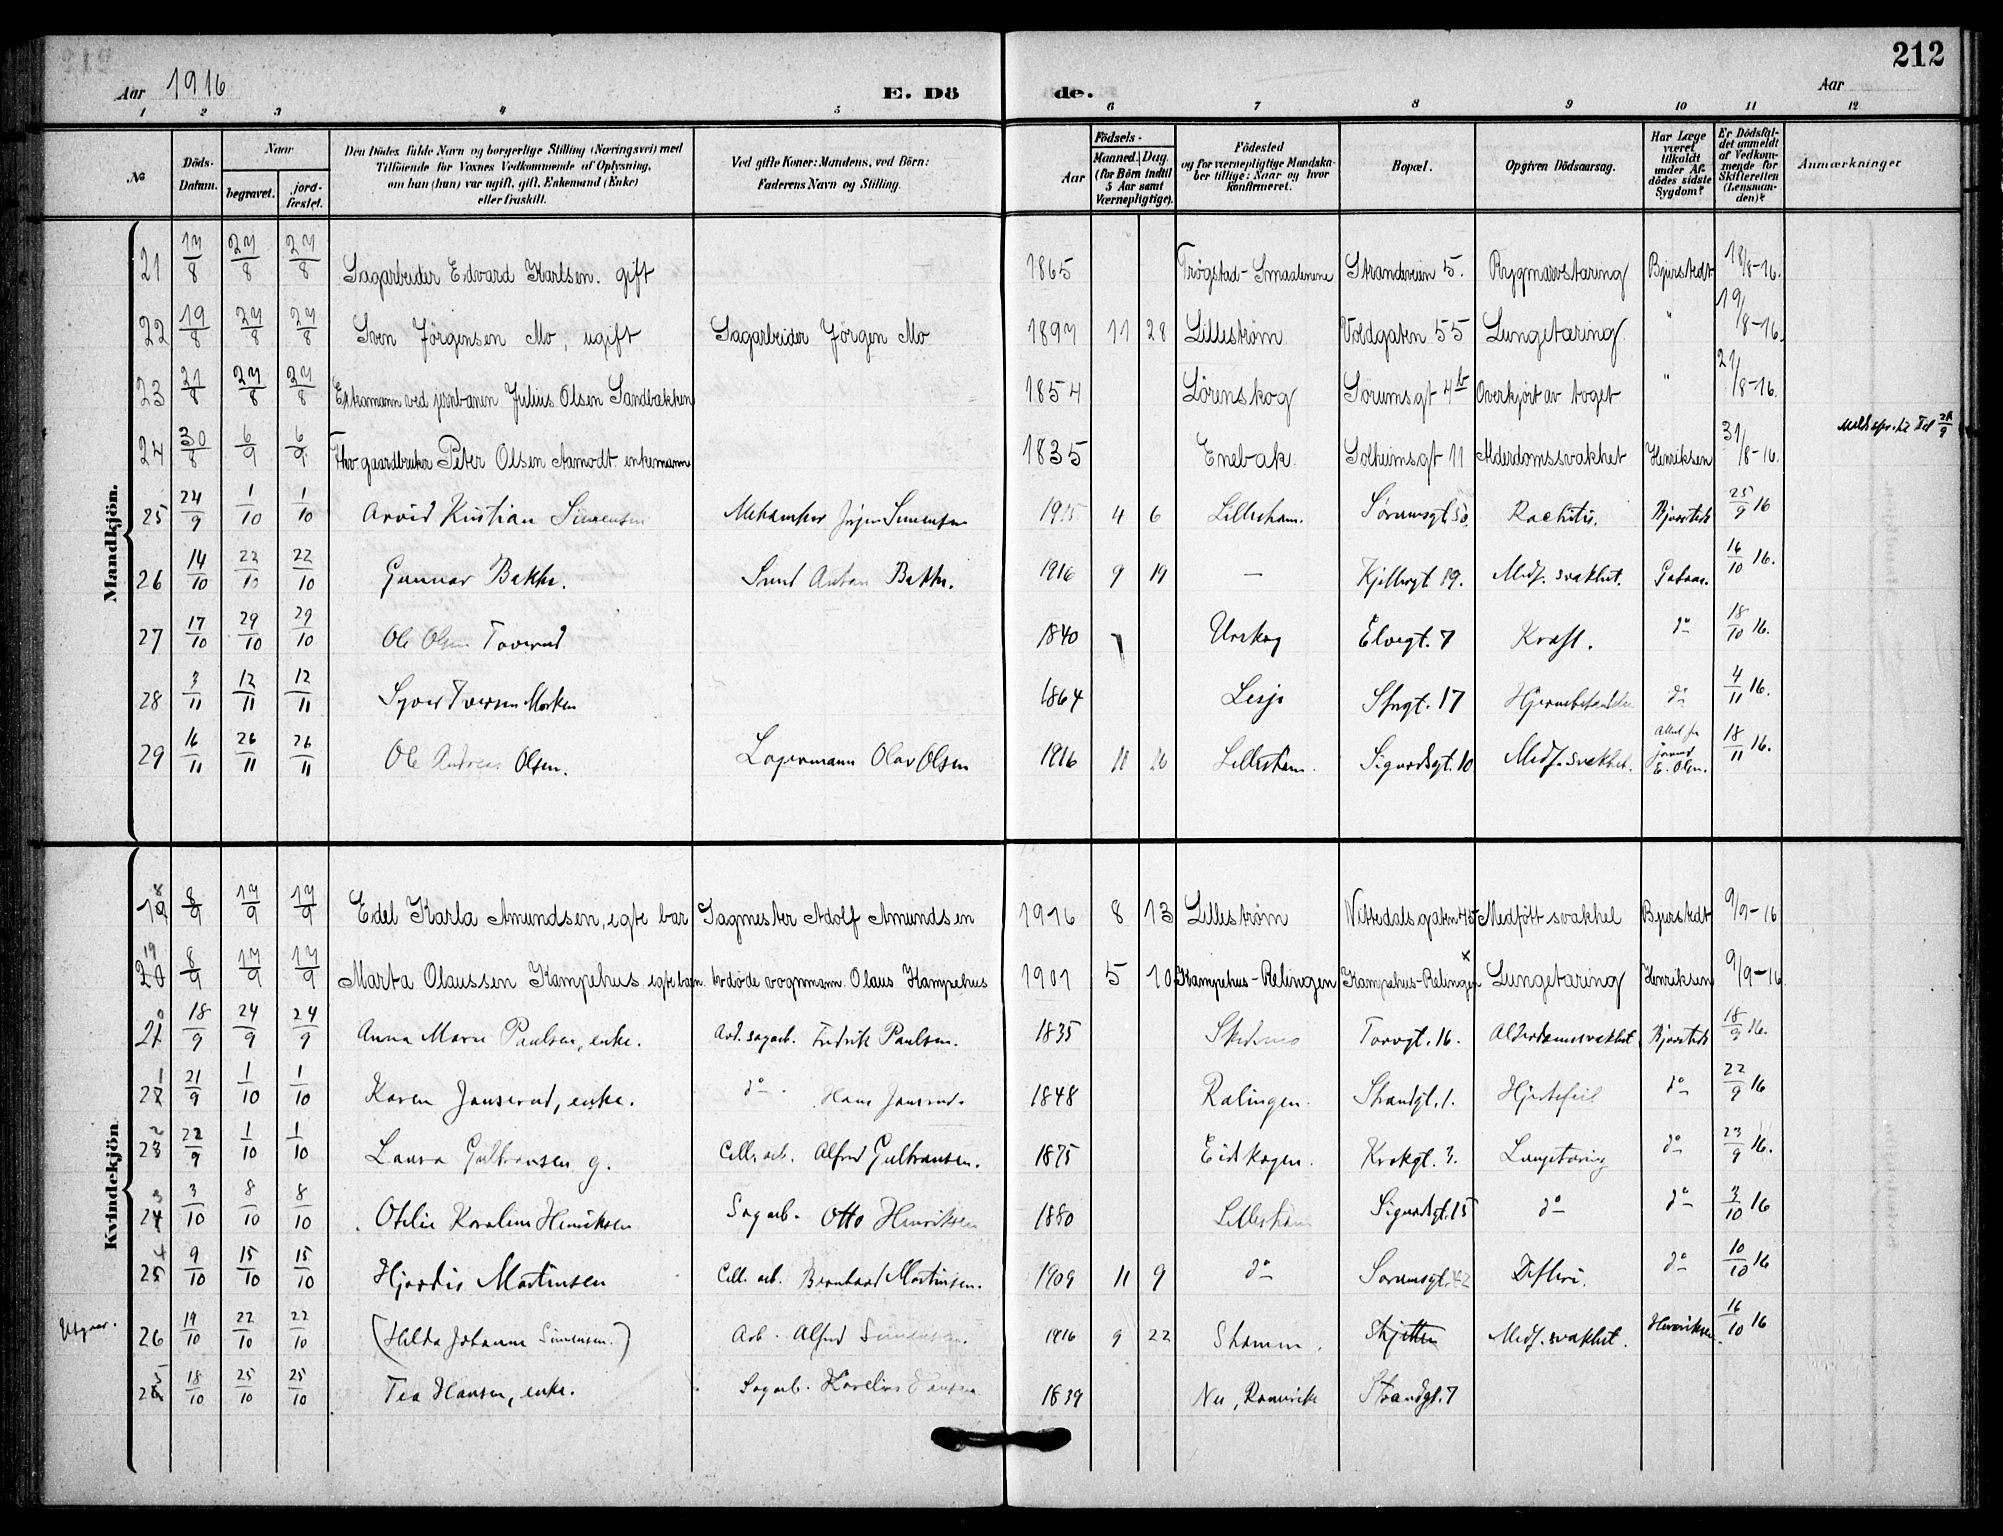 212
Aar 1916 E. Dö
de. Aar
1 2 3 4 5 6 7 8 9 10 11 12
No
Döds-Datum.
Naar
begravet.
jord-fæstet.
Den Dödes fulde Navn og borgerlige Stilling (Næringsvei) med
Tilföiende for Voxnes Vedkommende af Oplysning,
om han (hun) var ugift, gift, Enkemand (Enke)
eller fraskilt.
Ved gifte Koner: Mandens, ved Börn:
Faderens Navn og Stilling.
Födsels-
Aar
Maaned. Dag.
(for Börn indtil
5 Aar samt
Værnepligtige).
Födested
og for værnepligtige Mandska-
ber tillige: Naar og hvor
Konfirmeret.
Bopæl.
Opgiven Dödsaarsag.
Har Læge
været
tilkaldt
under Af-
dödes sidste
Sygdom?
Er Dödsfal-
det anmeldt
af Vedkom-
mende for
Skifteretten
(Lensman-
den)?
Anmærkninger
Mandkjön.
21 17/8 27/8 27/8 Sagarbeider Edvard Karlsen. gift 1865 Trögstad - Smaalenene Strandveien 5. Rygmarvstæring Bjerstedt 18/8-16.
22 19/8 27/8 27/8 Sven Jörgensen Mo, ugift Sagarbeider Jörgen Mo 1897 11 28 Lilleström Voldgaten 55 Lungetæring " 19/8-16.
23 21/8 27/8 27/8 Extramann ved jernbanen Julius Olsen Sandbakken 1854 Lörenskog Sorumsgt 4b Overkjört av toget " 21/8-16.
24 30/8 6/9 6/9 Fhv gaardbruker Peter Olsen Aamodt enkemann 1835 Enebak Solheimsgt 11 Alderdomssvakhet Henriksen 31/8-16.
25 24/9 1/10 1/10 Arvid Kristian Simensen Simensen 1915 4 6 Lilleström. Sørumsgt. Rachitis. Bjerstedt 25/9 16
26 14/10 22/10 22/10 Gunnar Bakke. Anton Bakke. 1916 9 19 — 19. Medf. svakhet. 16/10 16.
27 17/10 29/10 29/10 Ole Olsen 1840 Urskog Elvegt. 7 Kræft. do 18/10 16.
28 3/11 12/11 12/11 Syver Iversen 1864 Lesja 17 do 4/11 16.
29 16/11 26/11 26/11 Ole Andreas Olsen. Lagermann Olav Olsen 1916 Lilleström. Sigurdsgt. 10 Medf. svakhet. E. Olsen. 18/11 16.
Kvindekjön.
18 8/9 17/9 17/9 Edel Karla Amundsen, egte bar Sagmester Adolf Amundsen 1916 8 13 Lilleström Nittedalsgaten 45 Medfött svakhet Bjerstedt 9/9-16
19 8/9 17/9 17/9 Marta Olaussen Kampehus egte barn. Olaus Kampehus 1901 5 10 Kampehus-Relingen Kampehus-Relingen x Lungetæring Henriksen 9/9-16
20 18/9 24/9 24/9 Anna Marie Paulsen, enke. Fredrik Paulsen. 1835 Skedsmo Torvgt. 16. Alderdomssvakhet Bjerstedt 18/9 16.
21 21/9 1/10 1/10 Karen Janserud, enke. do Hans Janserud. 1848 Rælingen. Strandgt. 1. Hjertefeil do 22/9 16
22 22/9 1/10 1/10 Laura Gulbransen g. Cell. arb. Alfred Gulbransen. 1875 Eidskogen. Krokgt. 3. Lungetæring do 23/9 16.
23 3/10 8/10 8/10 Otilie Karoline Henriksen Sagarb. Otto Henriksen 1880 Lilleström Sigurdsgt. 15 do do 3/10 16
24 9/10 15/10 15/10 Hjørdis Martinsen Cell. arb. Bernhard Martinsen. 1909 11 9 do Sørumsgt. 42 Difteri. do 10/10 16
Utgaar. 26 19/10 22/10 22/10 (Hilda Johanne Simensen.) Arb. Alfred Simensen. 1916 9 22 Strømmen. Skjetten Medf. svakhet. Henriksen 16/10 16
25 18/10 25/10 25/10 Tea Hansen, enke. Sagarb. 1839 Nes, Romerike Strandgt. 7